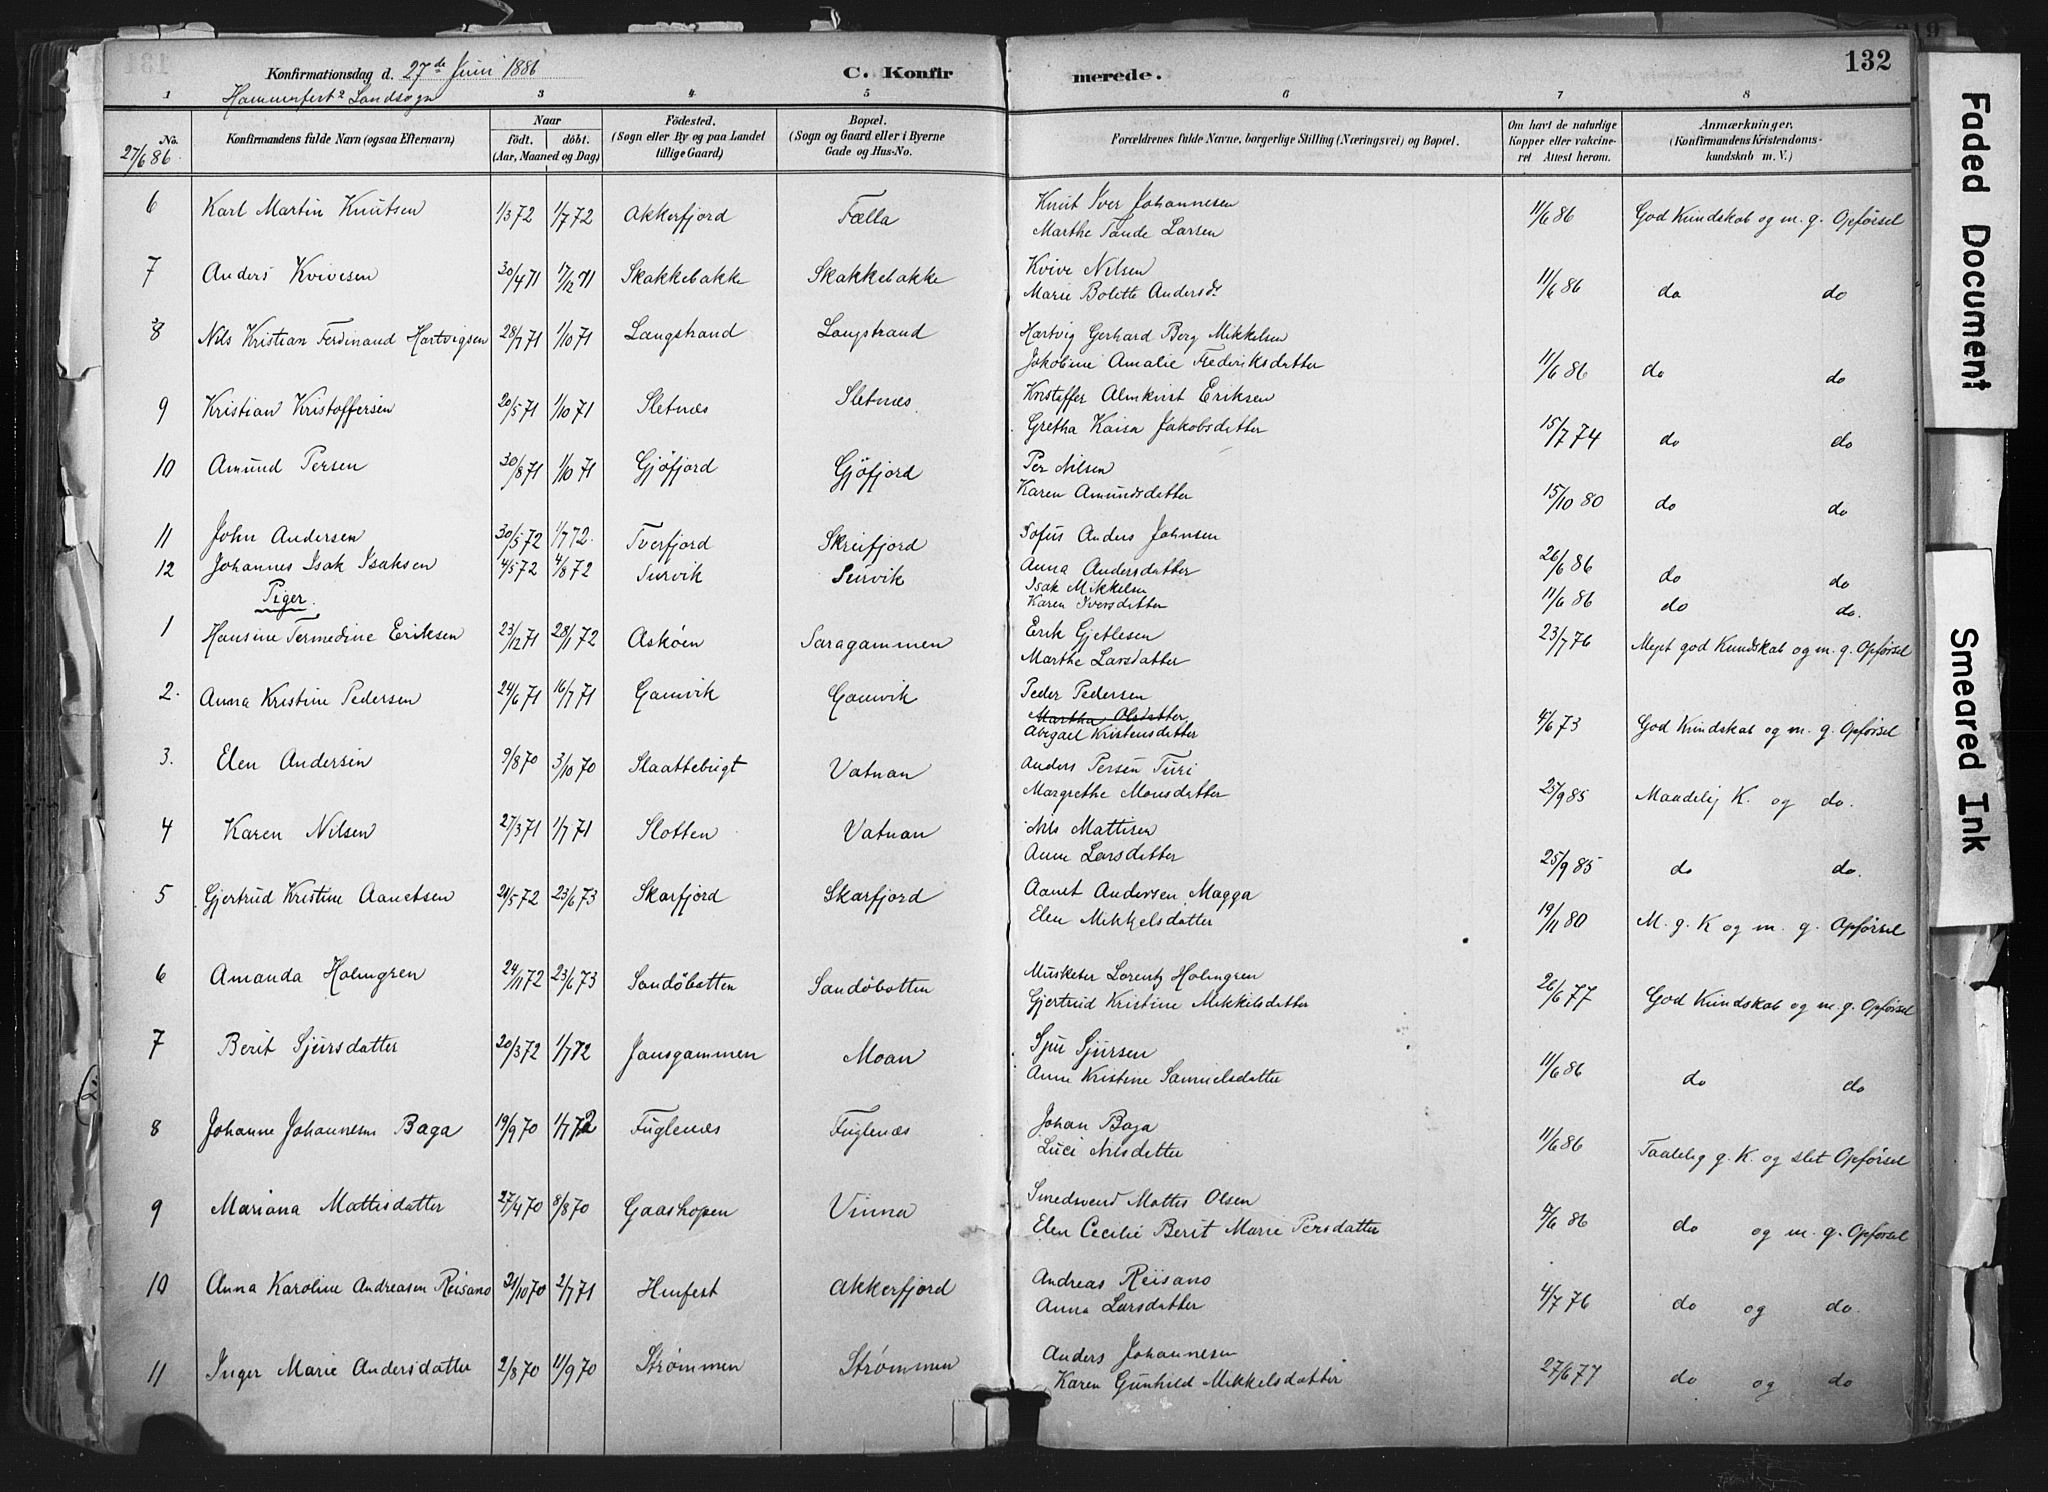 Konfirmationsdag d. 27de Juni 1886 C. Konfirmerede. 132
Hammerfest Landsogn
1 3 4 5 6 7 8
No. Konfirmandens fulde Navn (ogsaa Efternavn) Naar Födt. döbt. (Aar, Maaned og Dag) Födested. (Sogn eller By og paa Landet tillige Gaard) Bopæl. (Sogn og Gaard eller i Byerne Gade og Hus-No. Forældrenes fulde Navne, borgerlige Stilling (Næringsvei) og Bopæl. Om havt de naturlige Kopper eller vakcineret Attest herom. Anmærkninger. (Konfirmandens Kristendomskundskab m. V.)
27/6 86.
6 Karl Martin Knutsen 1/3 72 1/7 72 Akkerfjord Fælla Knut Iver Johannesen 11/6 86 God Kundskab og m. g. Opførsel
Marthe Tande Larsen
7 Anders Kvivesen 30/4 71 17/12 71 Skakkebakke Skakkebakke Kvive Nilsen 11/6 86 do do
Marie Bolette Andersd.
8 Nils Kristian Ferdinand Hartvigsen 28/7 71 1/10 71 Langstrand Langstrand Hartvig Gerhard Berg Mikkelsen
Jakobine Amalie Frederiksdatter 11/6 86 do do
9 Kristian Kristoffersen 20/5 71 1/10 71 Sletnæs Sletnæs Kristoffer Almkvist Eriksen
Gretha Kaisa Jakobsdatter 15/7 74 do do
10 Amund Persen 30/8 71 1/10 71 Gjøfjord Gjøfjord Per Nilsen
Karen Amundsdatter 15/10 80 do do
11 John Andersen 30/5 72 1/7 72. Tverfjord Skreifjord Sofus Anders Johnsen
Anna Andersdatter 26/6 86 do do
12 Johannes Isak Isaksen 4/5 72 4/8 72 Survik Survik Isak Mikkelsen
Karen Iversdatter 11/6 86 do do.
Piger.
1 Hansine Termedine Eriksen 23/12 71 28/1 72 Askøen Saragammen Erik Gjetlesen 23/7 76 Meget god Kundskab og m. g. Opførsel
Marthe Larsdatter
2. Anna Kristine Pedersen 24/6 71 16/7 71 Gamvik Gamvik Peder Pedersen
Martha Olsdatter
Abigael Kristensdatter 4/6 73 God Kundskab og m. g. Opførsel
3. Elen Andersen 9/8 70 3/10 70 Slaattebugt Vatnan Anders Persen Turi
Margrethe Monsdatter 25/9 85 Maadelig K. og do.
4 Karen Nilsen 27/3 71 1/7 71 Slotten Vatnan Nils Mattisen
Anne Larsdatter 25/9 85 do do.
5 Gjertrud Kristine Aanetsen 21/5 72 23/6 73 Skarfjord Skarfjord Aanet Andersen Magga
Elen Mikkelsdatter 19/11 80 M. g. K og m. g. Opførsel
6 Amanda Holmgren 24/11 72 23/6 73 Sandöbotten Sandöbotten Musketer Lorentz Holmgren
Gjertrud Kristine Mikkelsdatter 26/6 77 God Kundskab og m. g. Opførsel
7 Berit Sjursdatter 20/3 72 1/7 72 Jansgammen Moan Sjur Sjursen
Anne Kristine Samuelsdatter 11/6 86 do do
8 Johanne Johannesen Baga 19/9 70 1/7 72 Fuglenæs Fuglenæs Johan Baga
Luci Nilsdatter 11/6 86 Taalelig g. K. og slet Opførsel
9 Mariana Mattisdatter 27/4 70 8/8 70 Gaashopen Vinna Smedsvend Mattis Olsen
Elen Cecilie Berit Marie Persdatter 9/6 86 do og m. g. Opførsel
10 Anna Karoline Andreasen Reisano 21/10 70 2/7 71 Hmfest Akkerfjord Andreas Reisano
Anna Larsdatter 4/7 76 do og do.
11 Inger Marie Andersdatter 2/8 70 11/9 70 Strømmen Strømmen Anders Johannesen
Karen Gunhild Mikkelsdatter 27/6 77 do og do
Faded Document
Smeared Ink